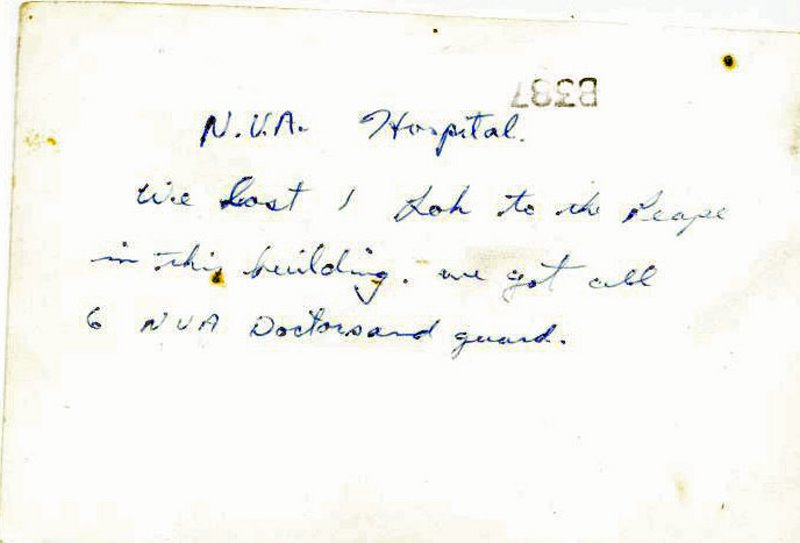 B387
N.V.A. Hospital.
We Lost 1 Loh to the
in this building. we got all
6 NVA Doctors and guard.